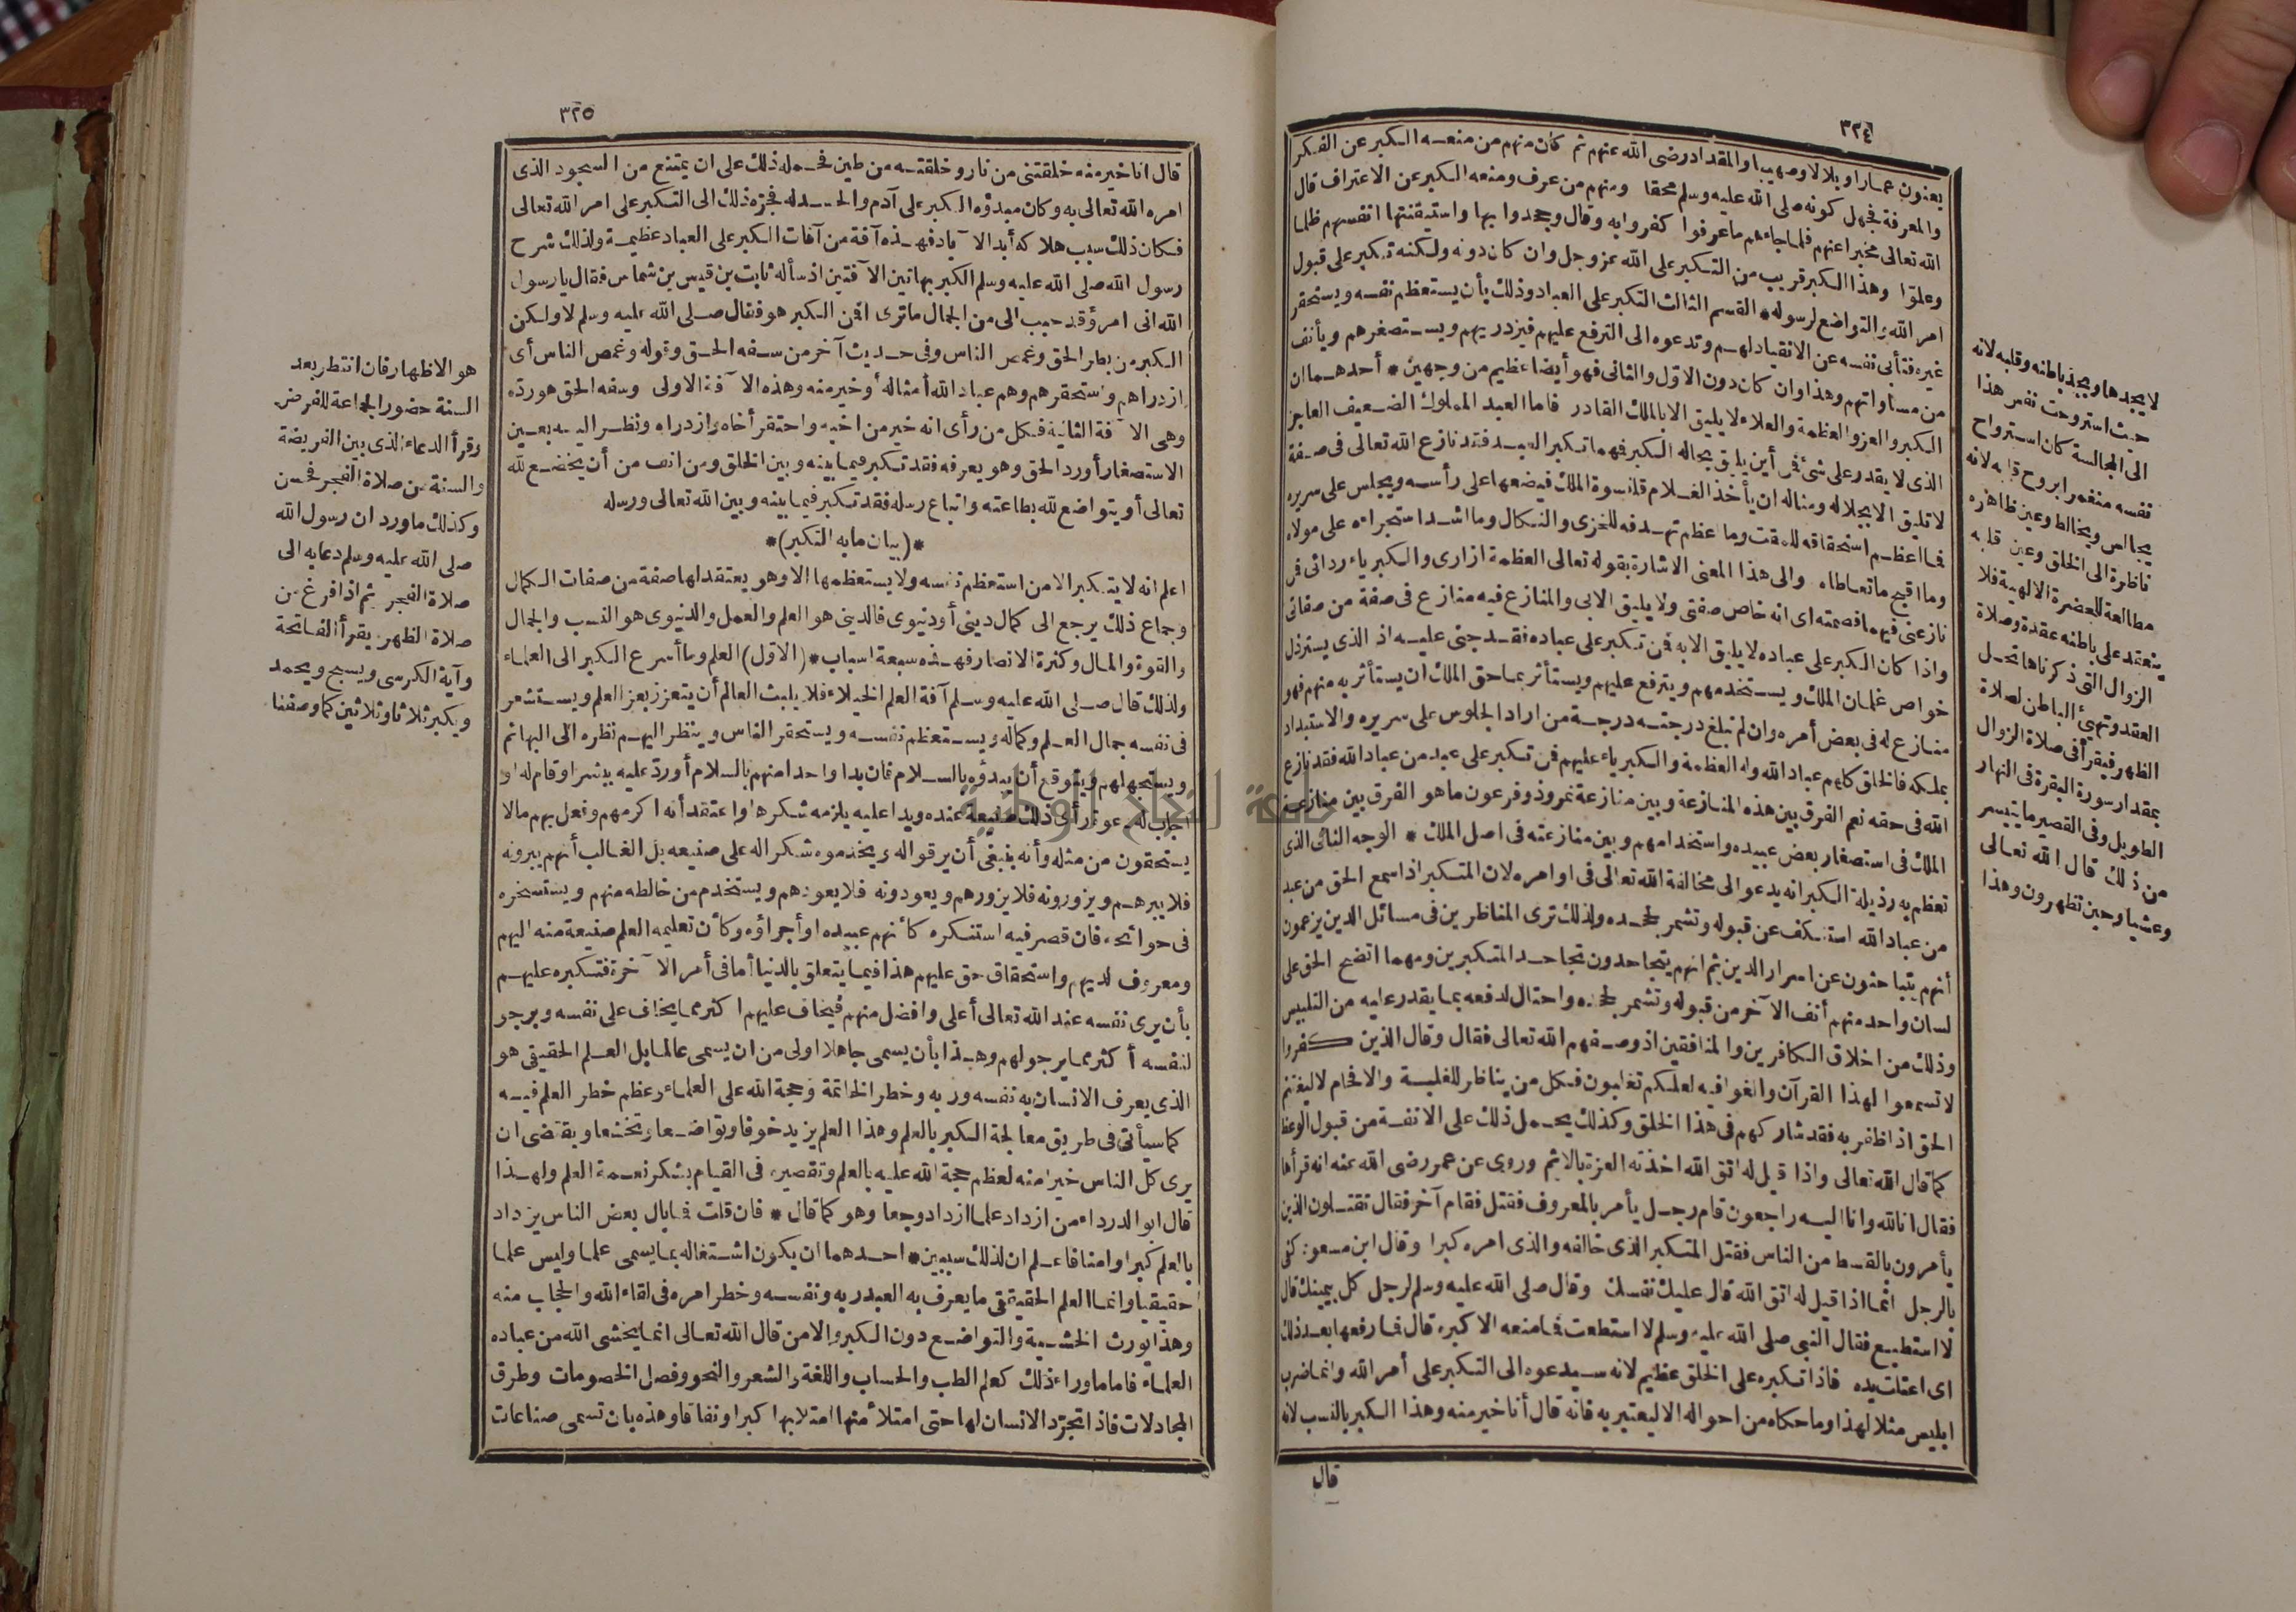 ٣٢٤
يعنون عمارا وبلالا وصهيبا والمقداد رضى الله عنهم ثم كان منهم من منعه الكبر عن الفكر
والمعرفة فجهل كونه صلى الله عليه وسلم محقا ومنهم من عرف ومنعه الكبر عن الاعتراف قال
الله تعالى مخبرا عنهم فلما جاءهم ما عرفوا كفروا به وقال وجحدوا بها واستيقنتها انفسهم ظلما
وعلوّا وهذا الكبر قريب من التكبر على الله عز وجل وان كان دونه ولكنه تكبر على قبول
امر الله والتواضع لرسوله * القسم الثالث التكبر على العباد وذلك بأن يستعظم نفسه ويستحقر
غيره فتأبى نفسه عن الانقياد لهم وتدعوه الى الترفع عليهم فيزدريهم ويستصغرهم ويأنف
من مساواتهم وهذا وان كان دون الاوّل والثانى فهو أيضا عظيم من وجهين * أحدهما ان
الكبر والعز والعظمة والعلاء لا يليق الا بالملك القادر فاما العبد المملوك الضعيف العاجز
الذى لا يقدر على شئ فمن أين يليق بحاله الكبر فمهما تكبر العبد فقد نازع الله تعالى فى صفة
لا تليق الا بجلاله ومثاله ان يأخذ الغلام قلنسوة الملك فيضعها على رأسه ويجلس على سريره
فما اعظم استحقاقه للمقت وما عظم تهدفه للخزى والنكال وما اشد استجراءه على مولاه
وما اقبح ما تعاطاه والى هذا المعنى الاشارة بقوله تعالى العظمة ازارى والكبرياء ردائى فمن
نازعنى فيهما قصمته اى انه خاص صفتى ولا يليق الابى والمنازع فيه منازع فى صفة من صفاتى
واذا كان الكبر على عباده لا يليق الا به فمن تكبر على عباده فقد جنى عليه اذ الذى يسترذل
خواص غلمان الملك ويستخدمهم ويترفع عليهم ويستأثر بما حق الملك ان يستأثر به منهم فهو
منازع له فى بعض أمره وان لم تبلغ درجته درجة من اراد الجلوس على سريره والاستبداد
بملكه فالخلق كلهم عباد الله وله العظمة والكبرياء عليهم فمن تكبر على عبد من عباد الله فقد نازع
الله فى حقه نعم الفرق بين هذه المنازعة وبين منازعة نمروذ وفرعون ما هو الفرق بين منازعة
الملك فى استصغار بعض عبيده واستخدامهم وبين منازعته فى اصل الملك * الوجه الثانى الذى
تعظم به رذيلة الكبر انه يدعو الى مخالفة الله تعالى فى اوامره لان المتكبر اذا سمع الحق من عبد
من عباد الله استنكف عن قبوله وتشمر لجحده ولذلك ترى المناظرين فى مسائل الدين يزعمون
أنهم يتباحثون عن اسرار الدين ثم انهم يتجاحدون تجاحد المتكبرين ومهما اتضح الحق على
لسان واحد منهم أنف الآخر من قبوله وتشمر لجحده واحتال لدفعه بما يقدر عليه من التلبيس
وذلك من اخلاق الكافرين والمنافقين اذ وصفهم الله تعالى فقال وقال الذين كفروا
لا تسمعوا لهذا القرآن والغوا فيه لعلكم تغلبون فكل من يناظر للغلبة والافحام لا ليغتنم
الحق اذا ظفر به فقد شاركهم فى هذا الخلق وكذلك يحمل ذلك على الانفة من قبول الوعظ
كما قال الله تعالى واذا قيل له اتق الله اخذته العزة بالاثم وروى عن عمر رضى الله عنه انه قرأها
فقال انا لله وانا اليه راجعون قام رجل يأمر بالمعروف فقتل فقام آخر فقال تقتلون الذين
يأمرون بالقسط من الناس فقتل المتكبر الذى خالفه والذى امره كبرا وقال ابن مسعود كفى
بالرجل اثما اذا قيل له اتق الله قال عليك نفسك وقال صلى الله عليه وسلم لرجل كل بيمينك قال
لا استطيع فقال النبى صلى الله عليه وسلم لا استطعت فما منعه الا كبره قال فما رفعها بعد ذلك
اى اعتلت يده فاذا تكبره على الخلق عظيم لانه سيدعوه الى التكبر على أمر الله وانما ضرب
ابليس مثلا لهذا وما حكاه من احواله الا ليعتبر به فانه قال أنا خير منه وهذا الكبر بالنسب لانه
قال
لا يجدها ويجذ باطنه وقلبه لانه
حيث استروحت نفس هذا
الى المجالسة كان استرواح
نفسه منغمرا بروح قلبه لانه
يجالس ويخالط وعين ظاهره
ناظرة الى الخلق وعين قلبه
مطالعة للحضرة الالهية فلا
ينعقد على باطنه عقدة وصلاة
الزوال التى ذكرناها تحل
العقد وتهيئ الباطن لصلاة
الظهر فيقرأ فى صلاة الزوال
بمقدار سورة البقرة فى النهار
الطويل وفى القصير ما يتيسر
من ذلك قال الله تعالى
وعشيا وحين تظهرون وهذا
٣٢٥
قال انا خير منه خلقتنى من نار وخلقته من طين فحمله ذلك على ان يمتنع من السجود الذى
امره الله تعالى به وكان مبدؤه الكبر على آدم والحسد له فجرّه ذلك الى التكبر على امر الله تعالى
فكان ذلك سبب هلاكه أبد الآباد فهذه آفة من آفات الكبر على العباد عظيمة ولذلك شرح
رسول الله صلى الله عليه وسلم الكبر بهاتين الآفتين اذ سأله ثابت بن قيس بن شماس فقال يا رسول
الله انى امرؤ قد حبب الى من الجمال ما ترى افمن الكبر هو فقال صلى الله عليه وسلم لا ولكن
الكبر من بطر الحق وغمص الناس وفى حديث آخر من سفه الحق وقوله وغمص الناس أى
ازدراهم واستحقرهم وهم عباد الله أمثاله أو خير منه وهذه الآفة الاولى وسفه الحق هو ردّه
وهى الآفة الثانية فكل من رأى انه خير من اخيه واحتقر أخاه وازدراه ونظر اليه بعين
الاستصغار أو رد الحق وهو يعرفه فقد تكبر فيما بينه وبين الخلق ومن انف من أن يخضع لله
تعالى أو يتواضع لله بطاعته واتباع رسله فقد تكبر فيما بينه وبين الله تعالى ورسله
*(بيان ما به التكبر)*
اعلم انه لا يتكبر الا من استعظم نفسه ولا يستعظمها الا وهو يعتقد لها صفة من صفات الكمال
وجماع ذلك يرجع الى كمال دينى أو دنيوى فالدينى هو العلم والعمل والدنيوى هو النسب والجمال
والقوة والمال وكثرة الانصار فهذه سبعة اسباب * (الاوّل) العلم وما أسرع الكبر الى العلماء
ولذلك قال صلى الله عليه وسلم آفة العلم الخيلاء فلا يلبث العالم أن يتعزز بعز العلم ويستشعر
فى نفسه جمال العلم وكماله ويستعظم نفسه ويستحقر الناس وينظر اليهم نظره الى البهائم
ويستجهلهم ويتوقع أن يبدؤه بالسلام فان بدا واحدا منهم بالسلام أو ردّ عليه ببشر او قام له او
اجاب له دعوة رأى ذلك صنيعة عنده ويدا عليه يلزمه شكرها واعتقد أنه اكرمهم وفعل بهم مالا
يستحقون من مثله وأنه ينبغى أن يرقوا له ويخدموه شكرا له على صنيعه بل الغالب أنهم يبرونه
فلا يبرهم ويزورونه فلا يزورهم ويعودونه فلا يعودهم ويستخدم من خالطه منهم ويستسخره
فى حوائجه فان قصر فيه استنكره كأنهم عبيده أو أجراؤه وكأن تعليمه العلم صنيعة منه اليهم
ومعروف لديهم واستحقاق حق عليهم هذا فيما يتعلق بالدنيا أما فى أمر الآخرة فتكبره عليهم
بأن يرى نفسه عند الله تعالى أعلى وافضل منهم فيخاف عليهم اكثر مما يخاف على نفسه ويرجو
لنفسه أكثر مما يرجو لهم وهذا بأن يسمى جاهلا اولى من ان يسمى عالما بل العلم الحقيقى هو
الذى يعرف الانسان به نفسه وربه وخطر الخاتمة وحجة الله على العلماء وعظم خطر العلم فيه
كما سيأتى فى طريق معالجة الكبر بالعلم وهذا العلم يزيد خوفا وتواضعا وتخشعا ويقتضى ان
يرى كل الناس خيرا منه لعظم حجة الله عليه بالعلم وتقصيره فى القيام بشكر نعمة العلم ولهذا
قال ابو الدرداء من ازداد علما ازداد وجعا وهو كما قال * فان قلت فما بال بعض الناس يزداد
بالعلم كبرا وامنا فاعلم ان لذلك سببين * احدهما ان يكون اشتغاله بما يسمى علما وليس علما
حقيقيا وانما العلم الحقيقى ما يعرف به العبد ربه ونفسه وخطر امره فى لقاء الله والحجاب منه
وهذا يورث الخشية والتواضع دون الكبر والامن قال الله تعالى انما يخشى الله من عباده
العلماء فاما ما وراء ذلك كعلم الطب والحساب واللغة والشعر والنحو وفصل الخصومات وطرق
المجادلات فاذا تجرّد الانسان لها حتى امتلأ منها امتلا بها كبرا ونفاقا وهذه بان تسمى صناعات
هو الاظهار فان انتظر بعد
السنة حضور الجماعة للفرض
وقرأ الدعاء الذى بين الفريضة
والسنة من صلاة الفجر فحسن
وكذلك ما ورد ان رسول الله
صلى الله عليه وسلم دعا به الى
صلاة الفجر ثم اذا فرغ من
صلاة الظهر يقرأ الفاتحة
وآية الكرسى ويسبح ويحمد
ويكبر ثلاثا وثلاثين كما وصفنا
جامعة النجاح الوطنية